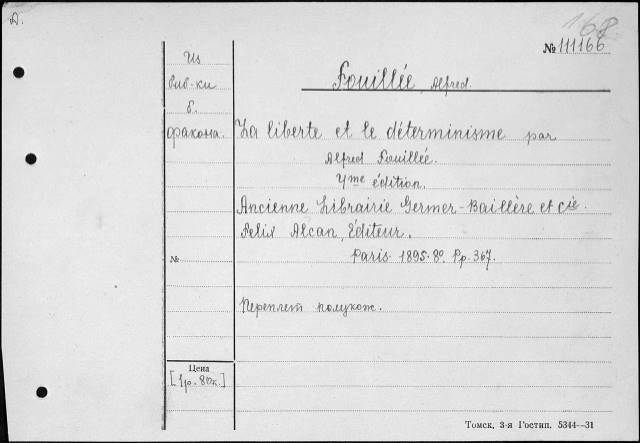 А.
168
№ 111166
Из
биб-ки
б.
факона.
Fouillée, Alfred.
La liberte et le déterminisme par
Alfred Fouillée.
4me édition.
Ancienne Librairie Germer-Baillère et Cie.
Felix Alcan, Éditeur.
№
Paris. 1895. 8°. Pp. 367.
Переплет полукож.
Цена
[1р. 80к.]
Томск, 3-я Гостип. 5344—31